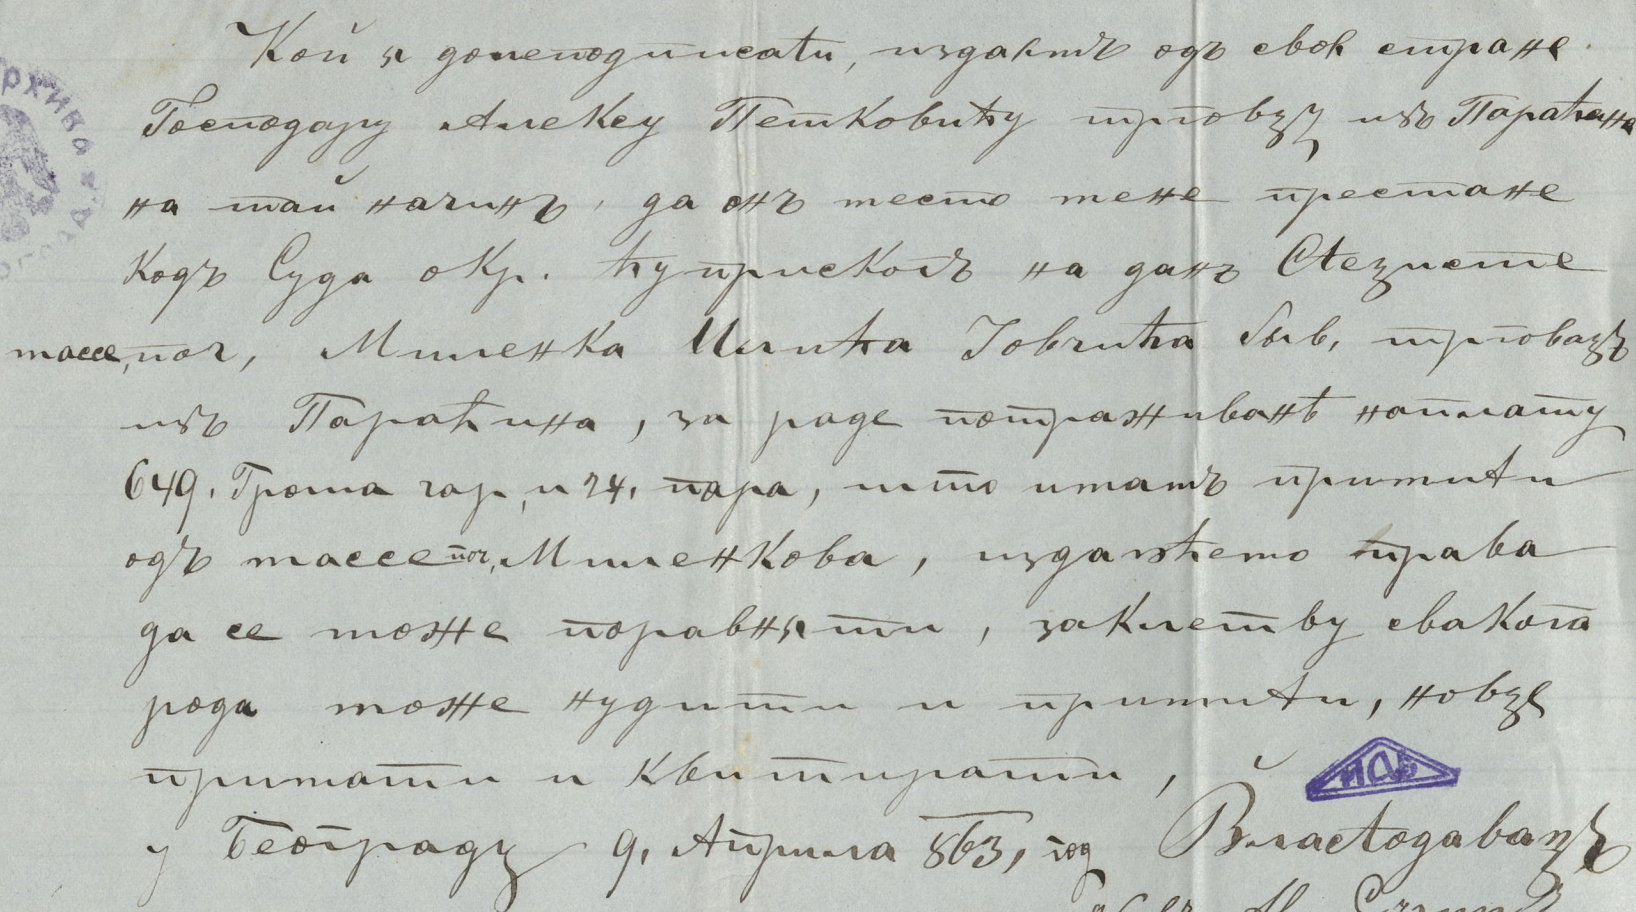 Кой я долеподписати, издаемъ одъ свое стране
Господару Алексу Петковићу трговцу изъ Параћина
на тай начинъ, да онъ место мене престане
Кодъ Суда окр. ћуприскогъ на данъ Стецисте
массе поч, Миленка Илића Јовчића быв, трговацъ
изъ Параћина, за раде потраживанѣ наплату
649. Гроша чар, и 24. пара, што имамъ примити
одъ массе поч, Миленкова, издаюћемо права
да се може поравняти, заклетву свакога
рода може нудити и примити, новце
примати и квитирати,
у Београду 9, Априла 863, год Властодавацъ
ИАБ